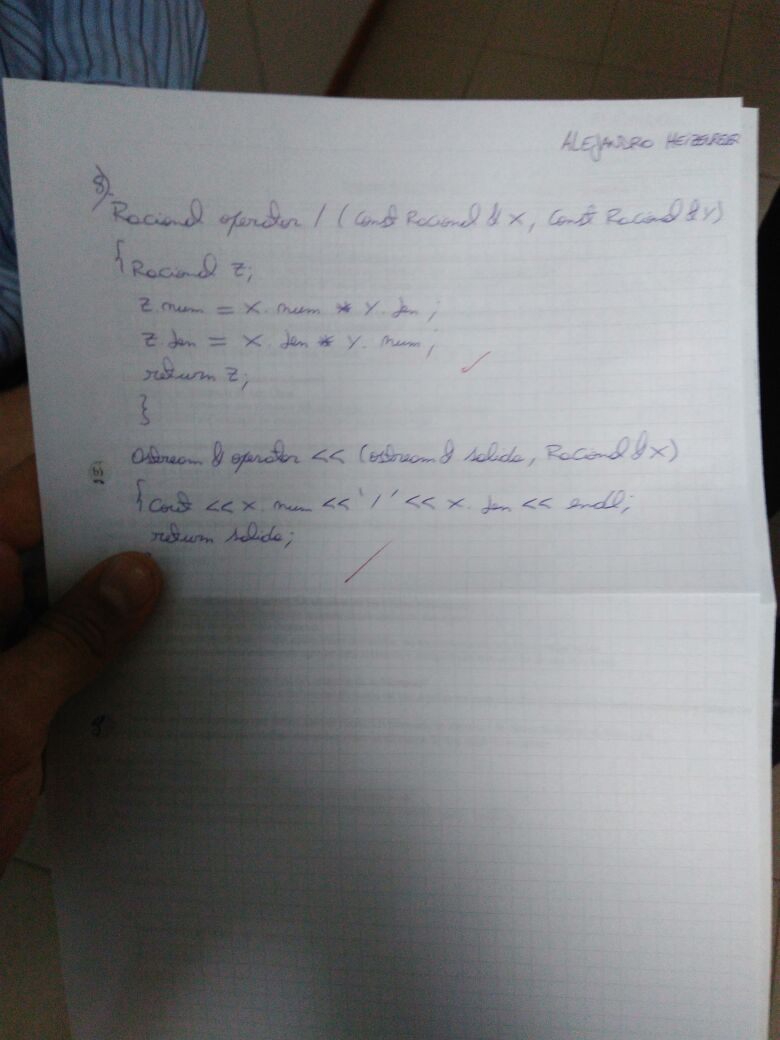 ALEJANDRO
8).
Racional operator / (const Racional & X, const Racional & Y)
{ Racional Z;
Z.num = X.num * Y.den;
Z.den = X.den * Y.num;
return Z;
}
Ostream & operator << (ostream & salida, Racional & X)
{ Cout << X.num << '/' << X.den << endl;
return salida;